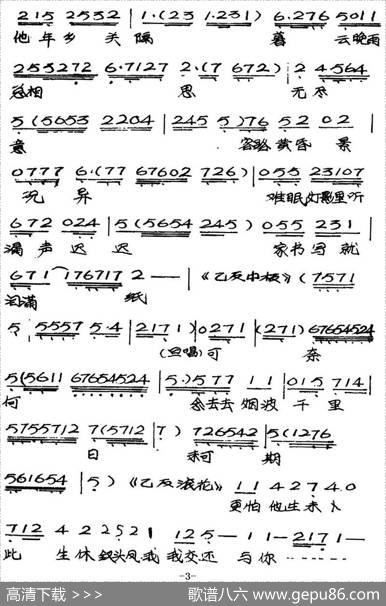 2 1 5 2 5 3 2 | 1·(2 3 1·2 3 1) | 6·2 7 6 5 0 1 1
他年乡关隔 暮云晚雨
2 5 3 2 7 2 6·7 1 2 7 2·(7 6 7 2) | 2 4·5 6 4
总相思无尽
5 (5 6 5 3 2 2 0 4 | 2 4 5 5) 7 6 5 2 0 2 |
意 客路黄昏景
0 7 7 7 6·(7 7 6 7 6 0 2 7 2 6) | 0 5 5 2 3 1 0 7
况异 难眠灯影里听
6 7 2 0 2 4 | 5 (5 6 5 4 2 4 5) | 0 5 5 2 3 1 |
漏声迟迟 家书写就
6 7 1 1 7 6 7 1 7 2 — — | 《乙反中板》(7 5 7 1
泪满纸
5 | 5 5 5 7 5·4 | 2 1 7 1) | 0 2 7 1 | (2 7 1) 6 7 6 5 4 5 2 4
(旦唱)可奈
5 (5 6 1 1 6 7 6 5 4 5 2 4 | 5·) 5 7 7 1 1 | 0 1 5 7 1 4 |
何 念去去烟波千里
5 7 5 5 7 1 2 7 (5 7 1 2 | 7) 7 2 6 5 4 2 | 5 (1 2 7 6
日 可期
5 6 1 6 5 4 | 5) 《乙反滚花》 1 1 4 2 7 4 0
更怕他生未卜
7 1 2 4 2 2 5 2 1 | 1 2 5 — 1 1 — 2 1 7 1 —
此生休 钗头凤我我交还与你 ……
-3-
高清下载 >>>
歌谱八六 www.gepu86.com